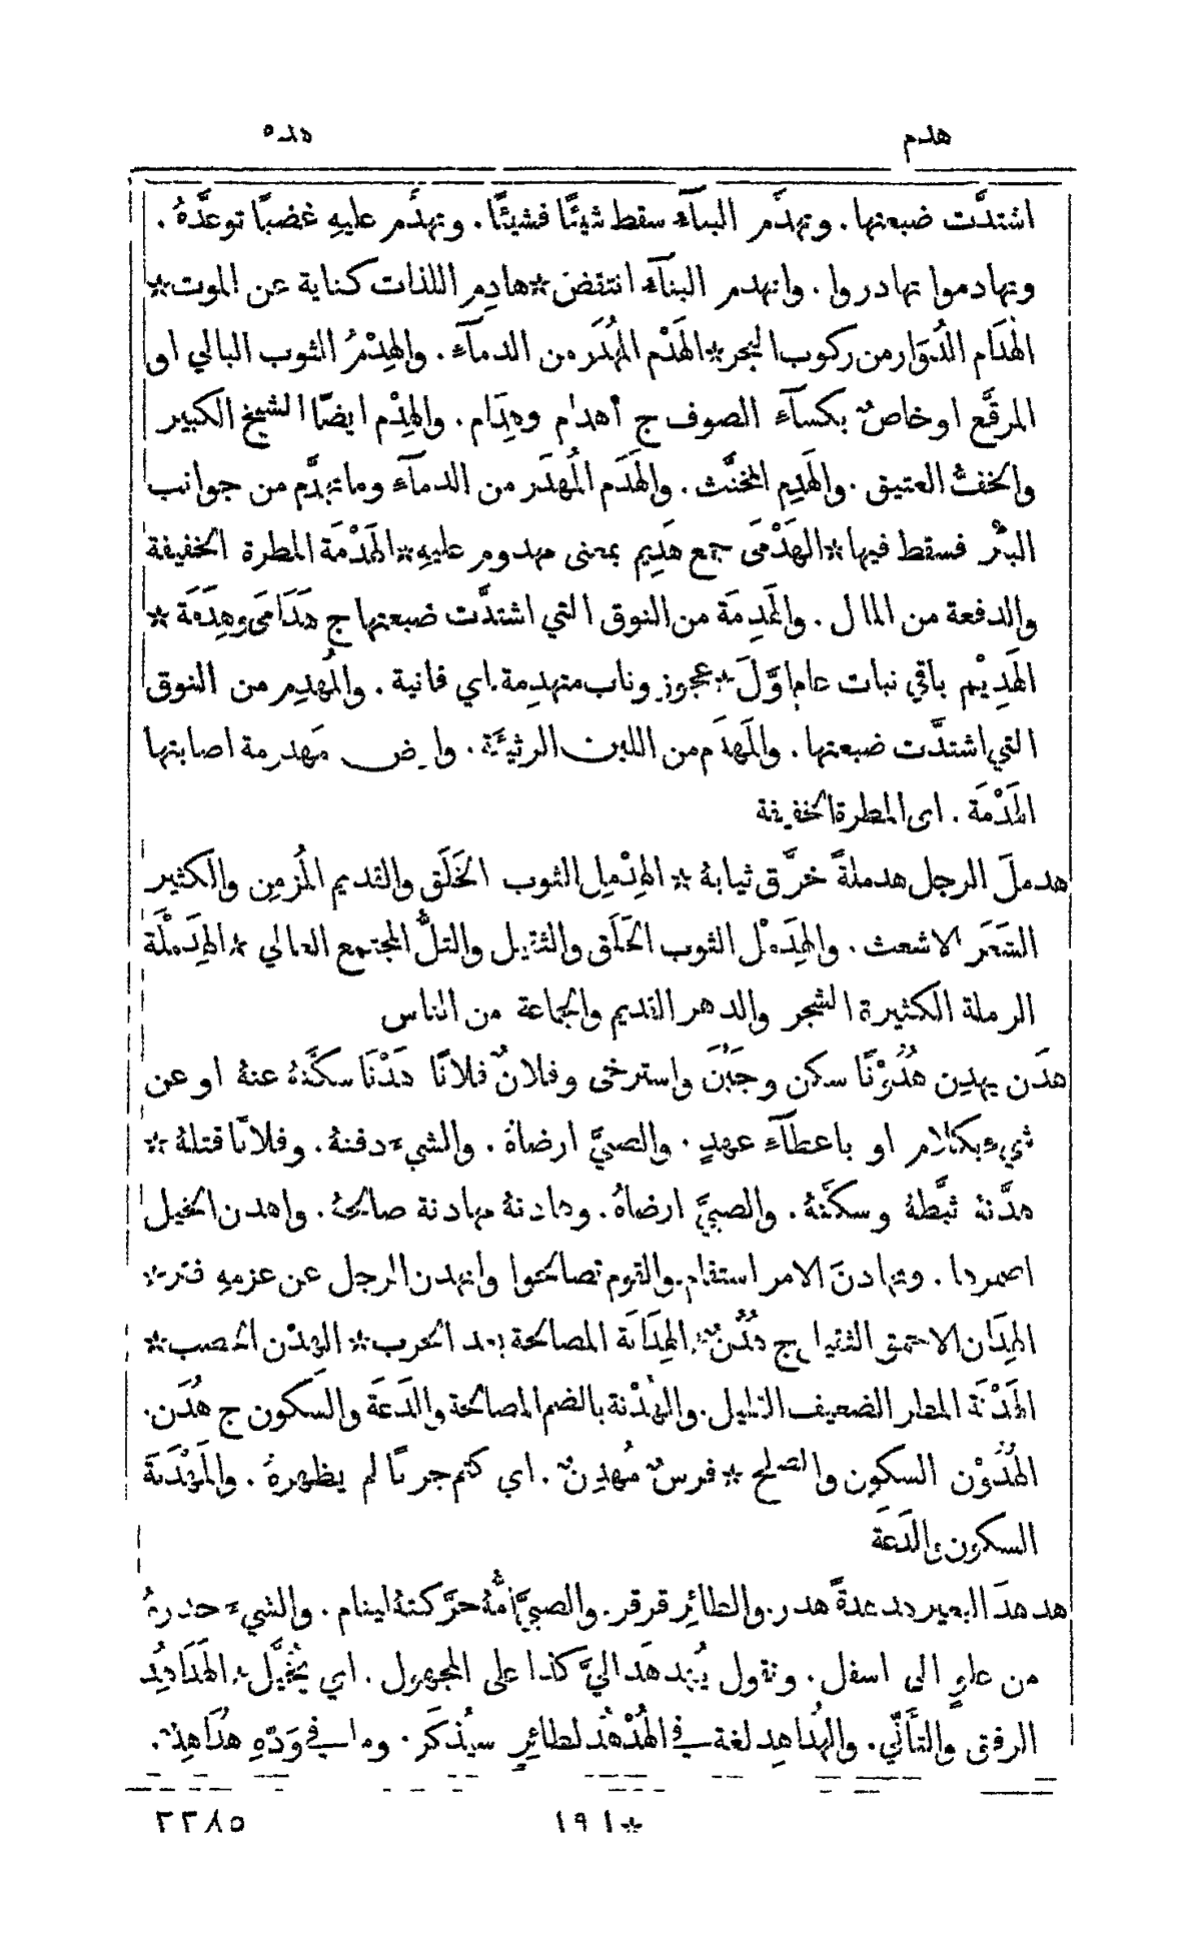 هدم
هده
اشتدَّت ضبعتها. وتهدَّم البناۤء سقط شيئًا فشيئًا. وتهدَّم عليهِ غضبًا توعَّدهُ.
وتهادموا تهادروا. وانهدم البناۤء انتقض * هادِم اللذات كناية عن الموت *
الهُدَام الدُوَار من ركوب البحر * الهَدْم المُهدَر من الدماۤء. والهِدْمُ الثوب البالي او
المرقَّع او خاصٌّ بكساۤء الصوف ج أهدام وهِدَام. والهِدْم ايضًا الشيخ الكبير
والخفُّ العتيق. والهَدِم المخنَّث. والهَدَم المُهدَر من الدماۤء وما تهدَّم من جوانب
البئْر فسقط فيها * الهَدْمَى جمع هَدِيم بمعنى مهدوم عليهِ * الهَدْمَة المطرة الخفيفة
والدفعة من المال. والهَدِمَة من النوق التي اشتدَّت ضبعتها ج هَدَامَى وهِدَمَة *
الهَدِيْم باقي نبات عام اوَّلَ * عجوز وناب متهدِمة اي فانية. والمُهدِم من النوق
التي اشتدَّت ضبعتها. والمَهدَم من اللبن الرثيئَة. وارض مَهدومة اصابتها
الهَدْمَة. اي المطرة الخفيفة
هدملَ الرجل هدملةً خرَّق ثيابهُ * الهِدْمِل الثوب الخَلَق والقديم المُزمِن والكثير
الشعَر الاشعث. والهِدَمْل الثوب الخَلَق والثقيل والتلُّ المجتمع العالي * الهِدَمْلَة
الرملة الكثيرة الشجر والدهر القديم والجماعة من الناس
هدَن يهدِن هُدُوْنًا سكن وجَبُنَ واسترخى وفلانٌ فلانًا هَدْنًا سكَّنهُ عنهُ او عن
شيءٍ بكلام او باعطاۤء عهدٍ. والصبيَّ ارضاهُ. والشيءَ دفنهُ. وفلانًا قتلهُ *
هدَّنهُ ثبَّطهُ وسكَّنهُ. والصبيَّ ارضاهُ. وهادنهُ مهادنة صالحهُ. واهدن الخيل
اضمرها. وتهادنَ الامر استقام. والقوم تصالحوا وانهدن الرجل عن عزمهِ فتر *
الهِدَان الاحمق الثقيل ج هُدُنٌ * الهِدَانَة المصالحة بعد الحرب * الهِدْن الخصب *
الهَدْنَة المطر الضعيف القليل. والهُدْنة بالضم المصالحة والدَعَة والسكون ج هُدَن.
الهُدُوْن السكون والصلح * فرسٌ مُهدِنٌ. اي كتم جريًا لم يظهرهُ. والمَهْدَنَة
السكون والدَعَة
هدهدَ البعير هدهدةً هدر. والطائِر قرقر. والصبيَّ أمُّهُ حرَّكتهُ لينام. والشيءَ حدرهُ
من علوٍ الى اسفل. وتقول يُهَدهَد اليَّ كذا على المجهول. اي يُخيَّل * الهَدَاهِد
الرفق والتأنّي. والهُدَاهِد لغة في الهُدْهُد لطائِرٍ سيُذكَر. وما في وَدّهِ هُدَاهِدٌ.
١٩١*
٢٢٨٥